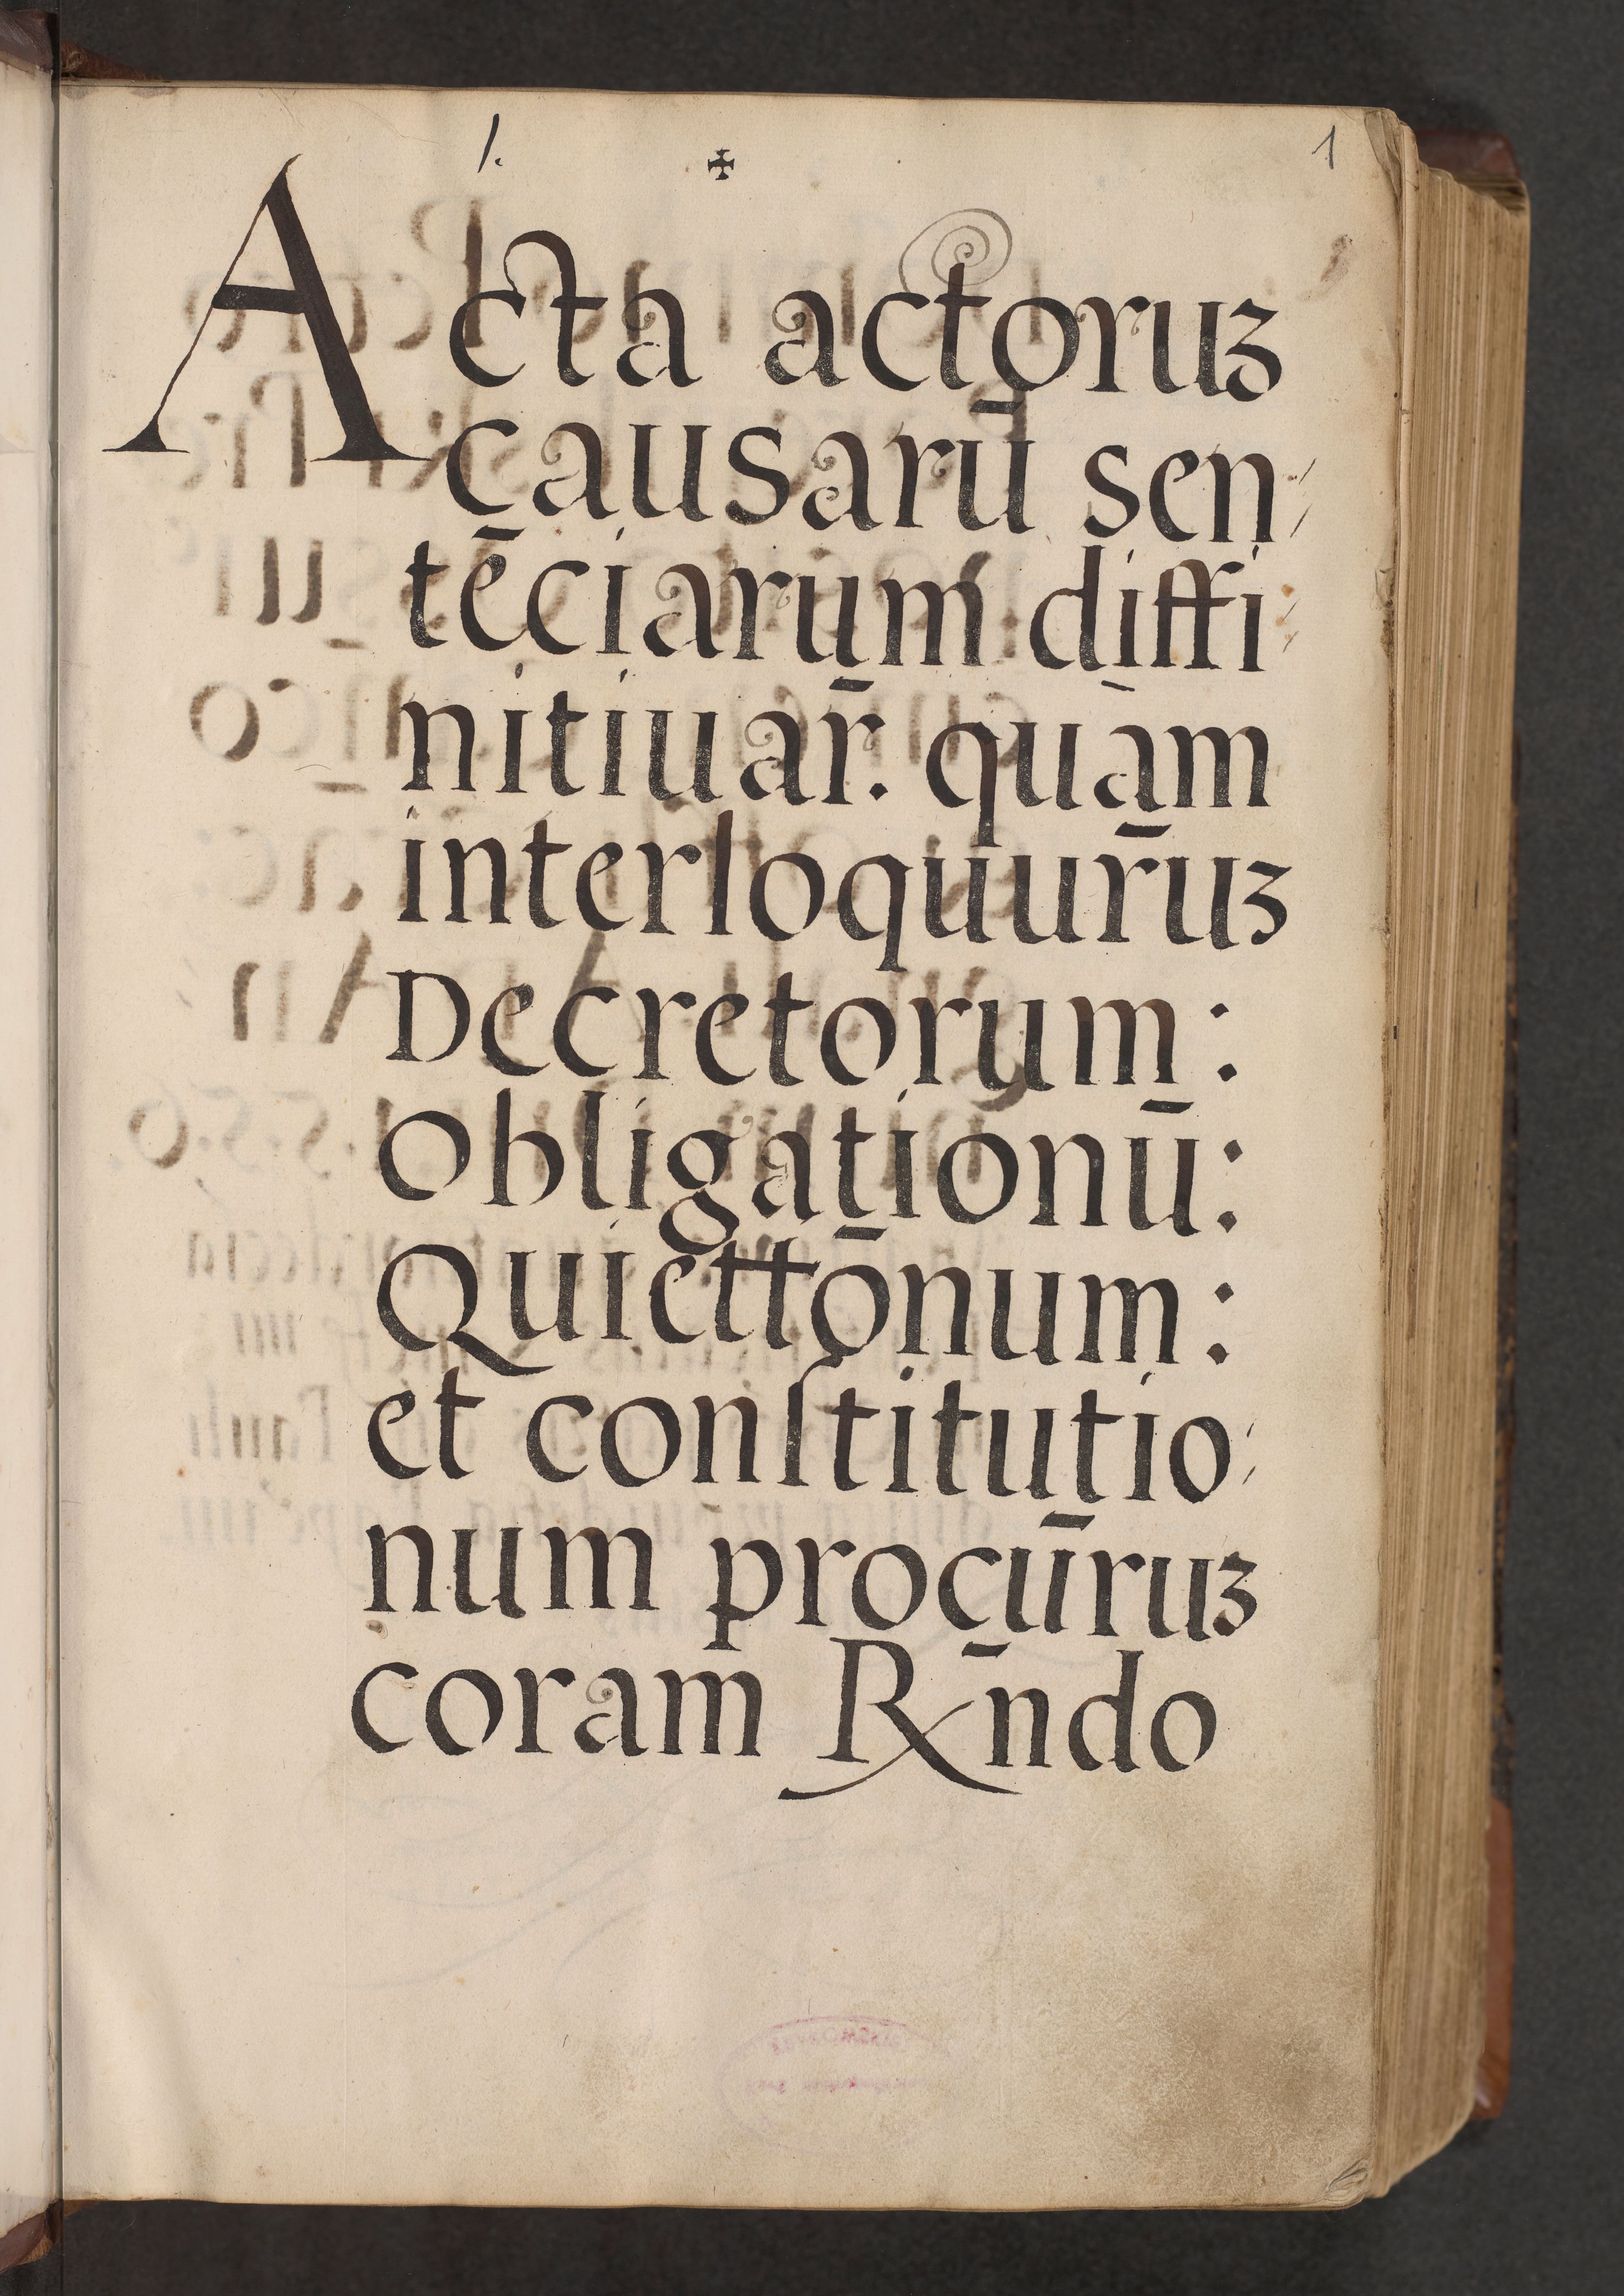 1. ✠ 1
Acta actoruꝫ
causarū sen⸗
tēciarum diffi⸗
nitiuar̄. quam
interloquur̄uꝫ
Decretorum:
Obligationū:
Quiettōnum:
et conſtitutio⸗
num procur̄uꝫ
coram Rndo